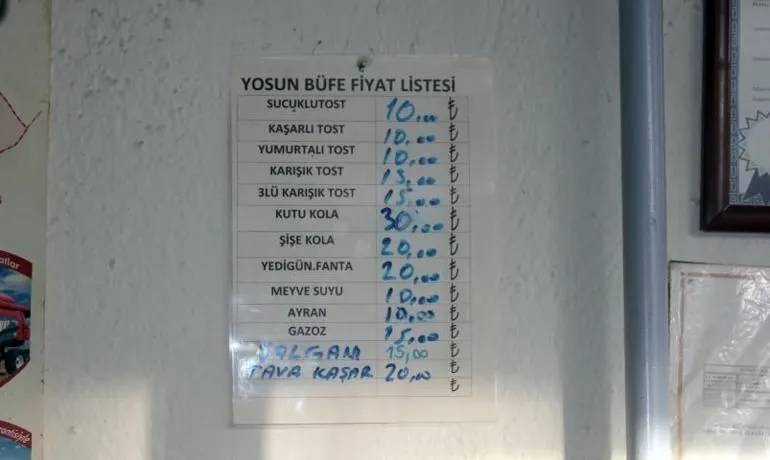 YOSUN BÜFE FİYAT LİSTESİ
SUCUKLUTOST 10,00 ₺
KAŞARLI TOST 10,00 ₺
YUMURTALI TOST 10,00 ₺
KARIŞIK TOST 15,00 ₺
3LÜ KARIŞIK TOST 15,00 ₺
KUTU KOLA 30,00 ₺
ŞİŞE KOLA 20,00 ₺
YEDİGÜN.FANTA 20,00 ₺
MEYVE SUYU 10,00 ₺
AYRAN 10,00 ₺
GAZOZ 15,00 ₺
ŞALGAM 15,00 ₺
TAVA KAŞAR 20,00 ₺
₺